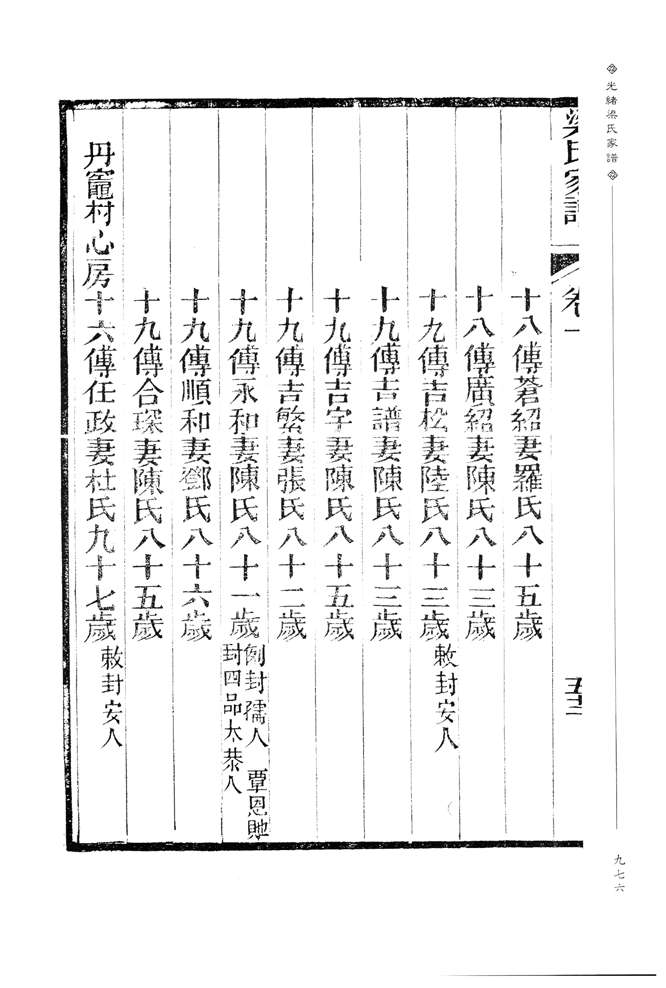 光緒梁氏家譜
九七六
梁氏家譜 卷一 五十三
十八傳蒼紹妻羅氏八十五歲
十八傳廣紹妻陳氏八十三歲
十九傳吉松妻陸氏八十三歲 敕封安人
十九傳吉譜妻陳氏八十三歲
十九傳吉字妻陳氏八十五歲
十九傳吉繁妻張氏八十二歲
十九傳永和妻陳氏八十一歲 例封孺人 覃恩貤
封四品太恭人
十九傳順和妻鄧氏八十六歲
十九傳合琛妻陳氏八十五歲
丹竈村心房十六傳任政妻杜氏九十七歲 敕封安人